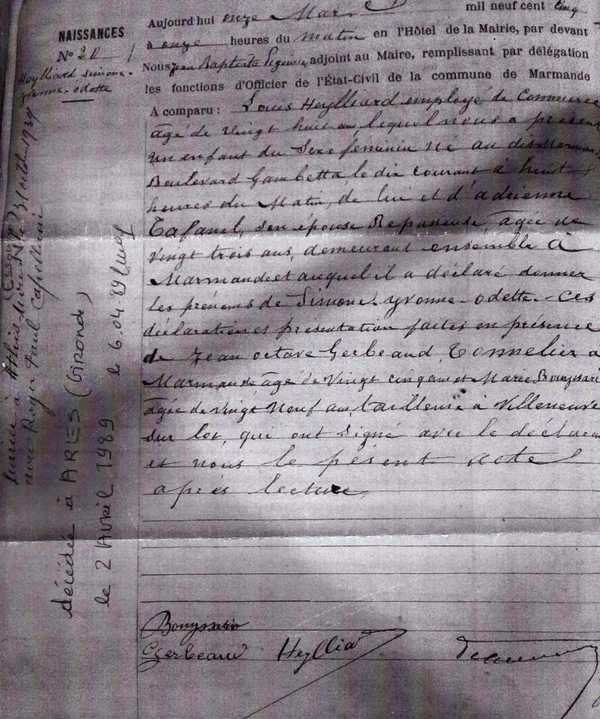 NAISSANCES
N° 20
Heylliard Simone-
yvonne-odette
Aujourd'hui onze Mars mil neuf cent cinq
à onze heures du matin en l'Hôtel de la Mairie, par devant
Nous Jean Baptiste adjoint au Maire, remplissant par délégation
les fonctions d'Officier de l'État-Civil de la commune de Marmande
A comparu : Louis Heylliard employé de Commerce
âgé de vingt huit ans lequel nous a présenté
un enfant du sexe féminin né au dit Marmande
Boulevard Gambetta le dix courant à huit
heures du Matin, de lui et d'adrienne
Tafanel, son épouse Repasseuse, agée de
vingt trois ans, demeurant ensemble à
Marmande et auquel il a déclaré donner
les prénoms de Simone-yvonne-odette. Ces
déclaration et présentation faites en présence
de Jean octave Gerbeaud, Tonnelier à
Marmande âgé de vingt cinq ans et Marie Bouyssari
agée de vingt Neuf ans tailleuse à Villeneuve
sur lot, qui ont signé avec le déclarant
et nous le présent acte
après lecture,
Bouyssari
Gerbeaud Heyllia
avec Roger Paul
décédée à ARES (GIRONDE)
le 2 AVRIL 1989 le 6.04.89